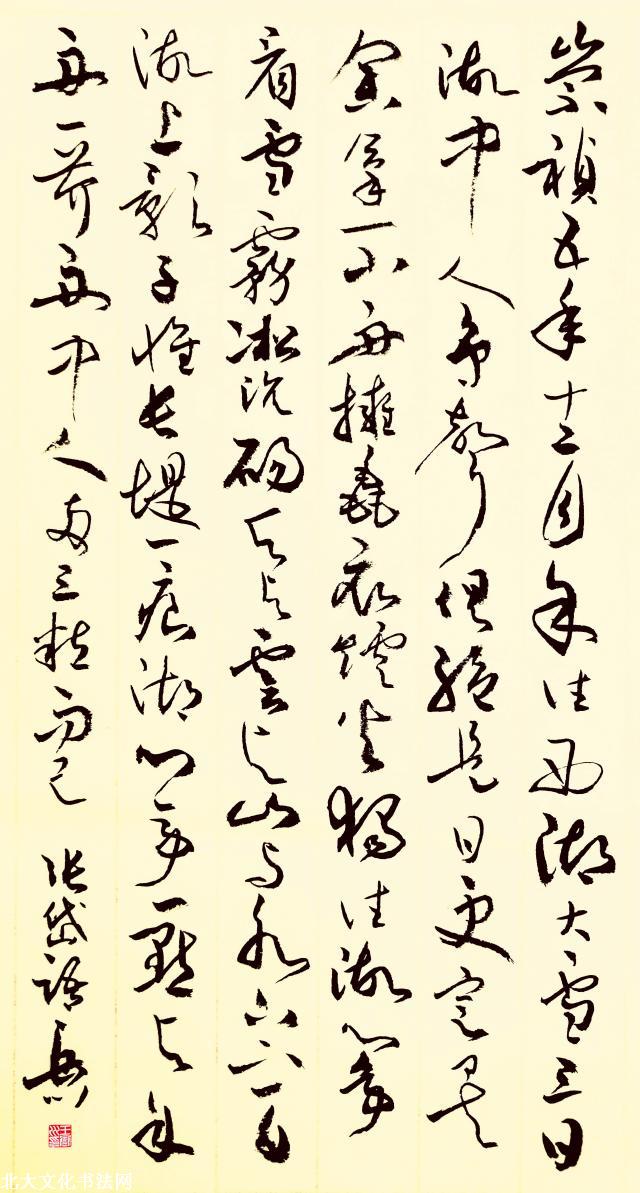 崇禎五年十二月余住西湖大雪三日
湖中人鳥聲俱絕是日更定矣
余拏一小舟擁毳衣爐火獨往湖心亭
看雪霧凇沆碭天与雲与山与水上下一白
湖上影子惟長堤一痕湖心亭一點与余
舟一芥舟中人兩三粒而已 張岱語
北大文化书法网